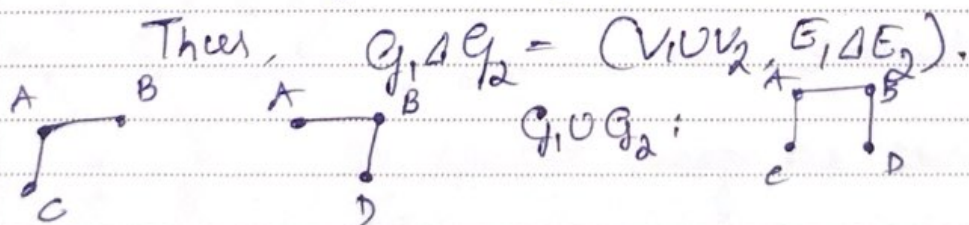 Thus, G₁ Δ G₂ = (V₁UV₂, E₁ΔE₂).
A B A B G₁UG₂ : A B
C D C D